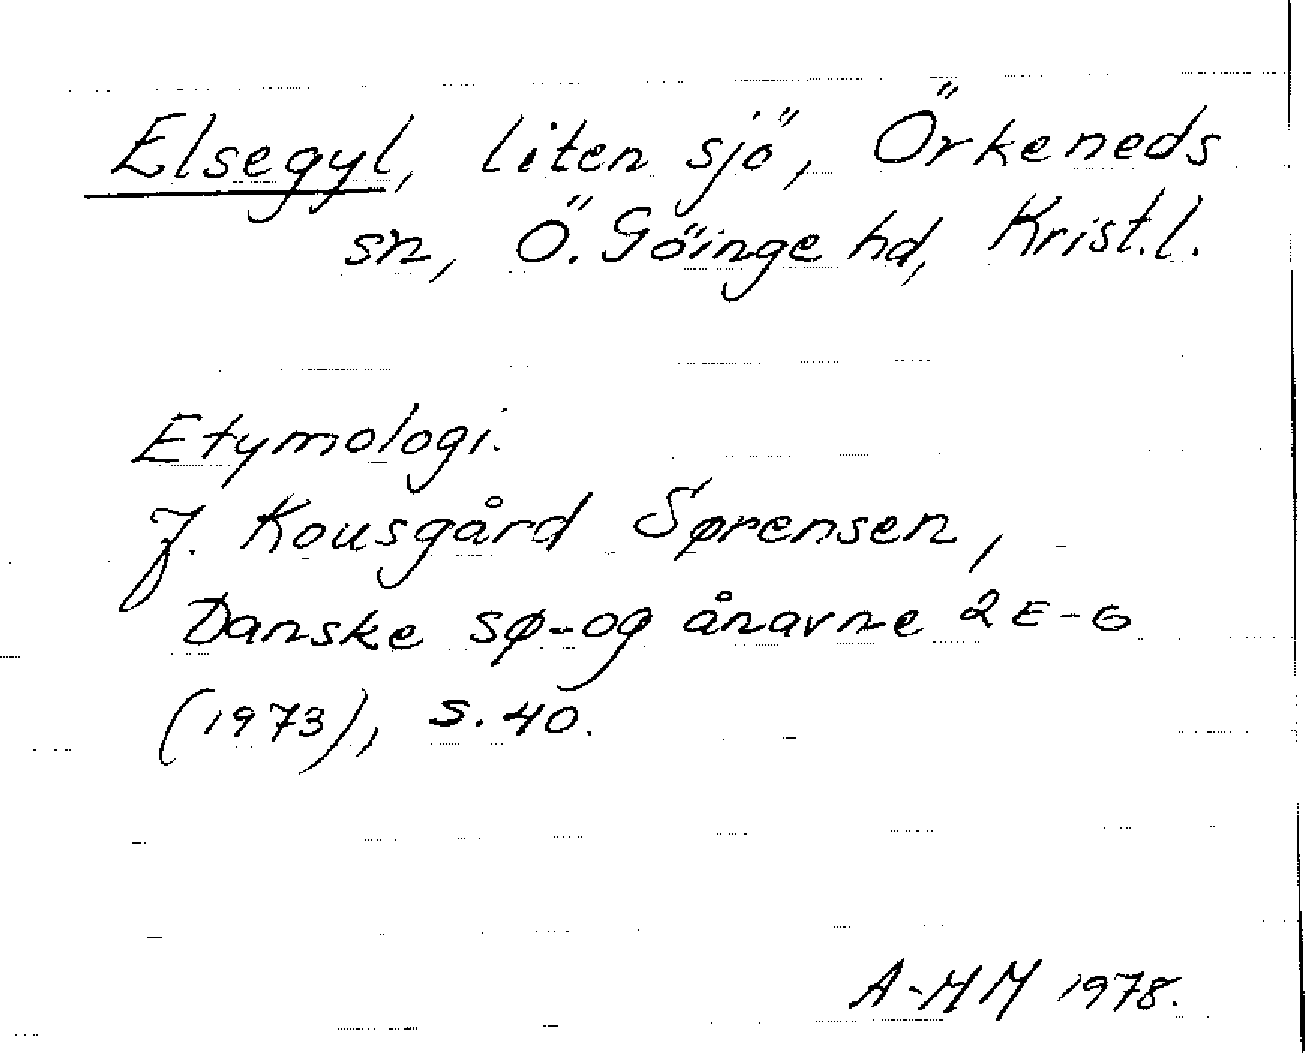 Elsegyl, liten sjö, Örkeneds
sn, Ö. Göinge hd, Krist. l.
Etymologi.
J. Kousgård Sørensen,
Danske sø- og ånavne 2 E-G
(1973), s. 40.
A-MM 1978.